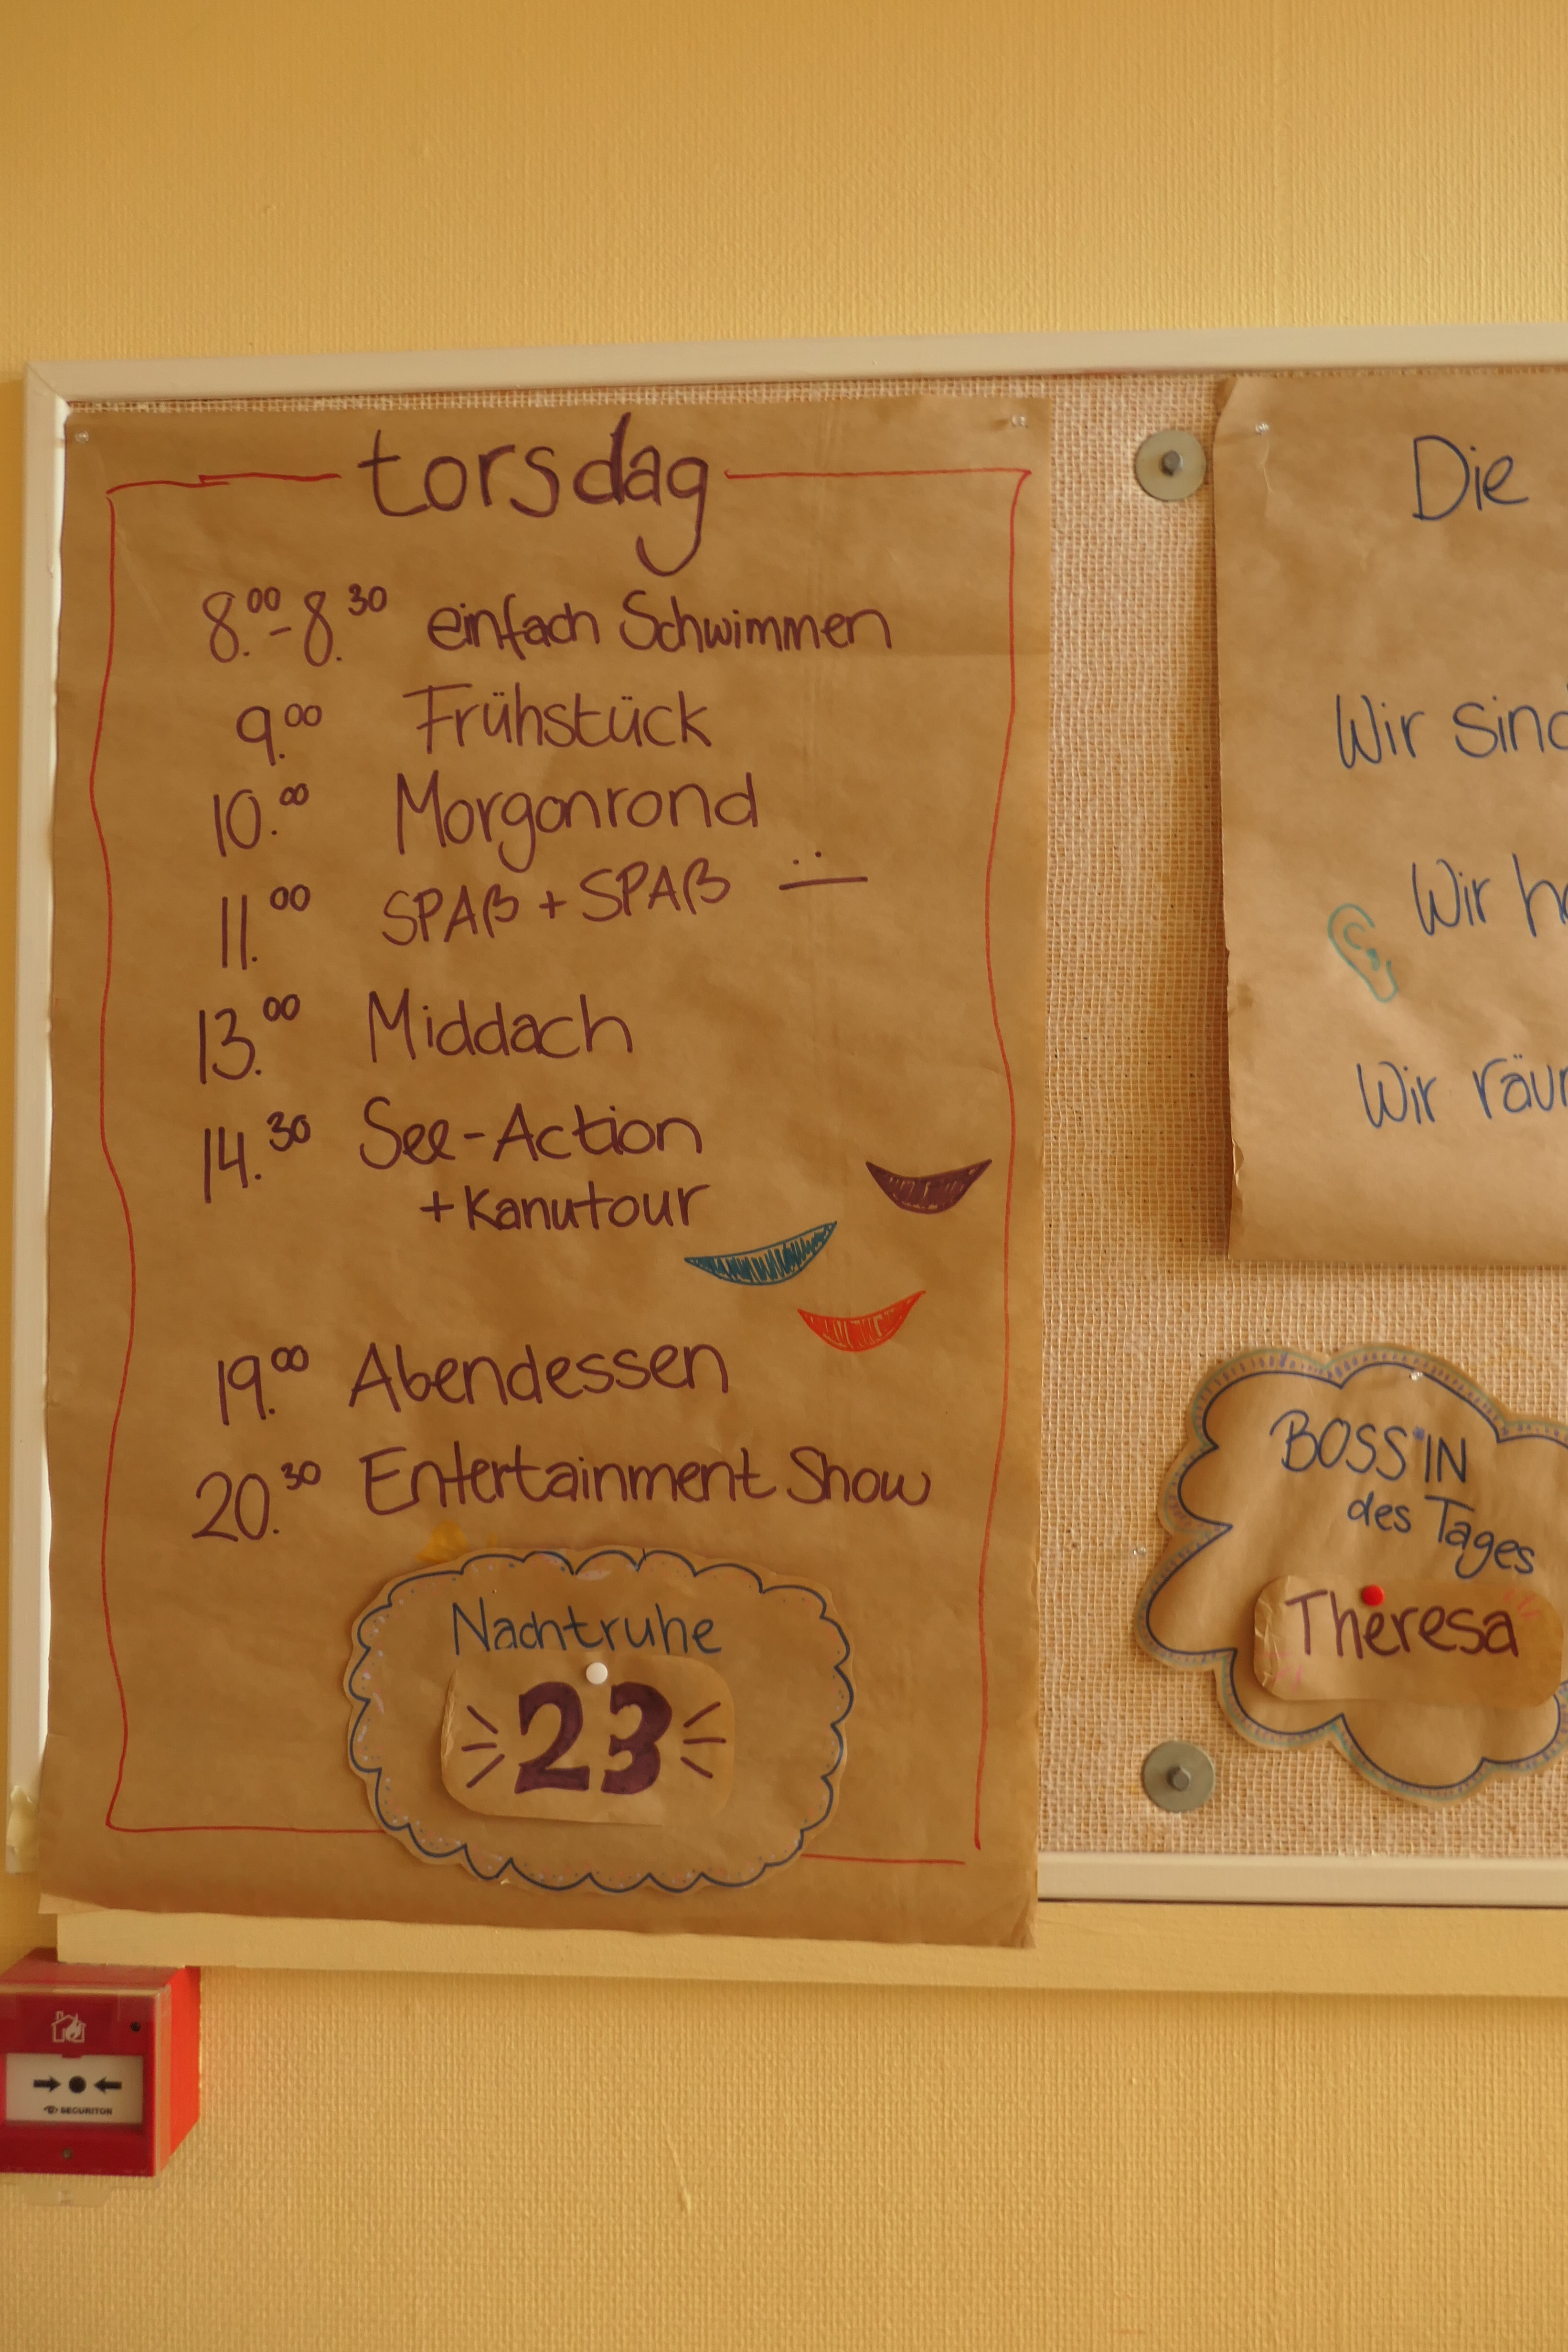 torsdag
8.00-8.30 einfach Schwimmen
9.00 Frühstück
10.00 Morgonrond
11.00 SPAß + SPAß
13.00 Middach
14.30 See-Action
+Kanutour
19.00 Abendessen
20.30 Entertainment Show
Nachtruhe
23
Die
Wir sind
Wir
Wir
BOSS*IN
des Tages
Theresa
SECURITON